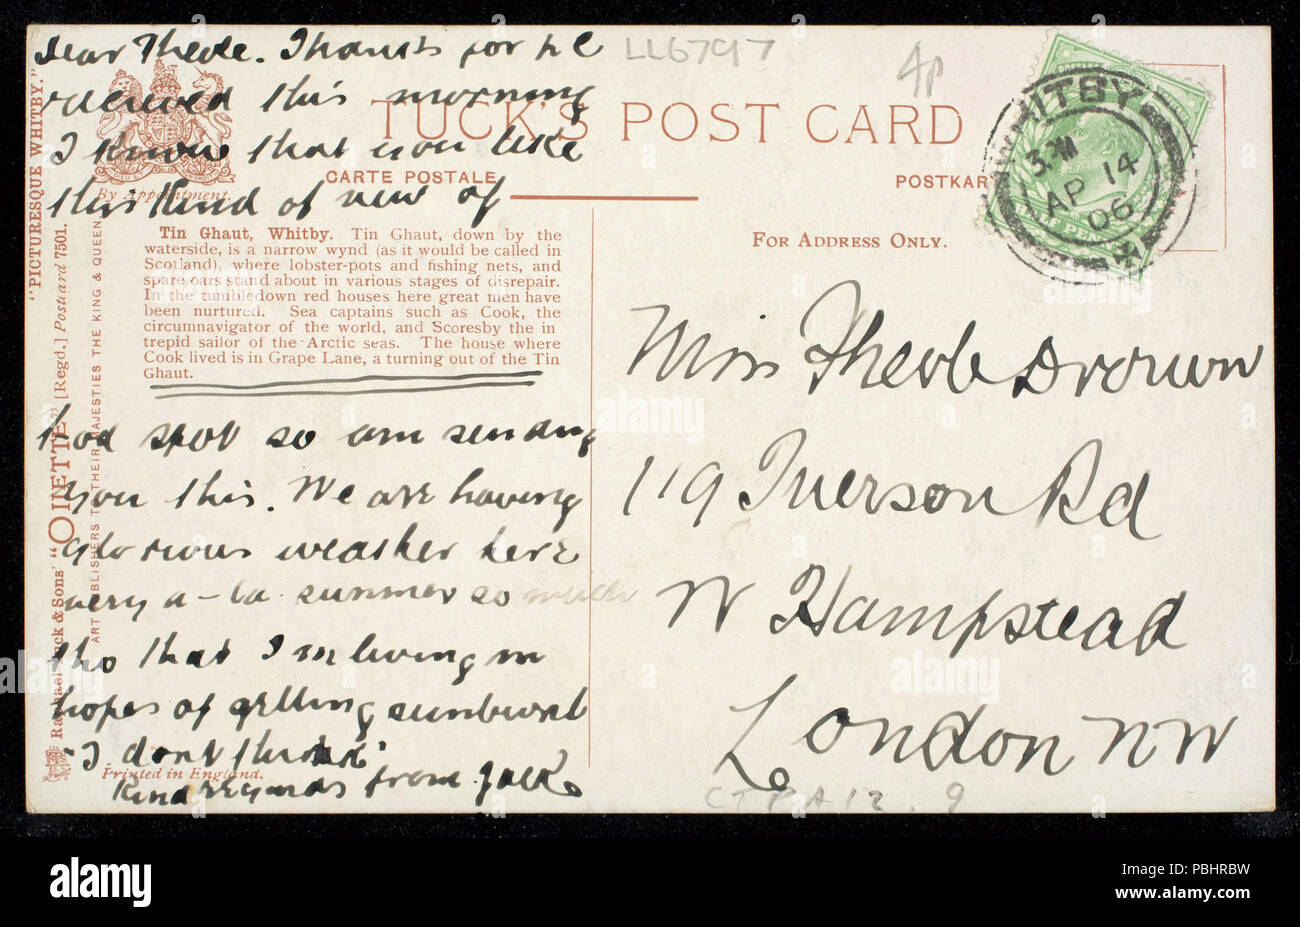 Dear Theole. Thanks for p.c
received this morning
I know that you like
this kind of view of
that spot so am sending
you this. We are having
glorious weather here
very a-la summer so much
tho that I'm living in
hopes of getting sunburnt
"I dont think"
Kind regards from Jack
"PICTURESQUE WHITBY."
Raphael Tuck & Sons' "OILETTE" [Regd.] Postcard 7501.
ART PUBLISHERS TO THEIR MAJESTIES THE KING & QUEEN
By Appointment.
TUCK'S POST CARD
CARTE POSTALE
POSTKAR
Tin Ghaut, Whitby. Tin Ghaut, down by the
waterside, is a narrow wynd (as it would be called in
Scotland), where lobster-pots and fishing nets, and
spare oars stand about in various stages of disrepair.
In the tumbledown red houses here great men have
been nurtured. Sea captains such as Cook, the
circumnavigator of the world, and Scoresby the in
trepid sailor of the Arctic seas. The house where
Cook lived is in Grape Lane, a turning out of the Tin
Ghaut.
Printed in England.
FOR ADDRESS ONLY.
LL6797
4p
WHITBY
3. PM
AP 14
06
Miss Theole Brown
119 Iverson Rd
W Hampstead
London NW
alamy
alamy
Image ID: PBHRBW
www.alamy.com